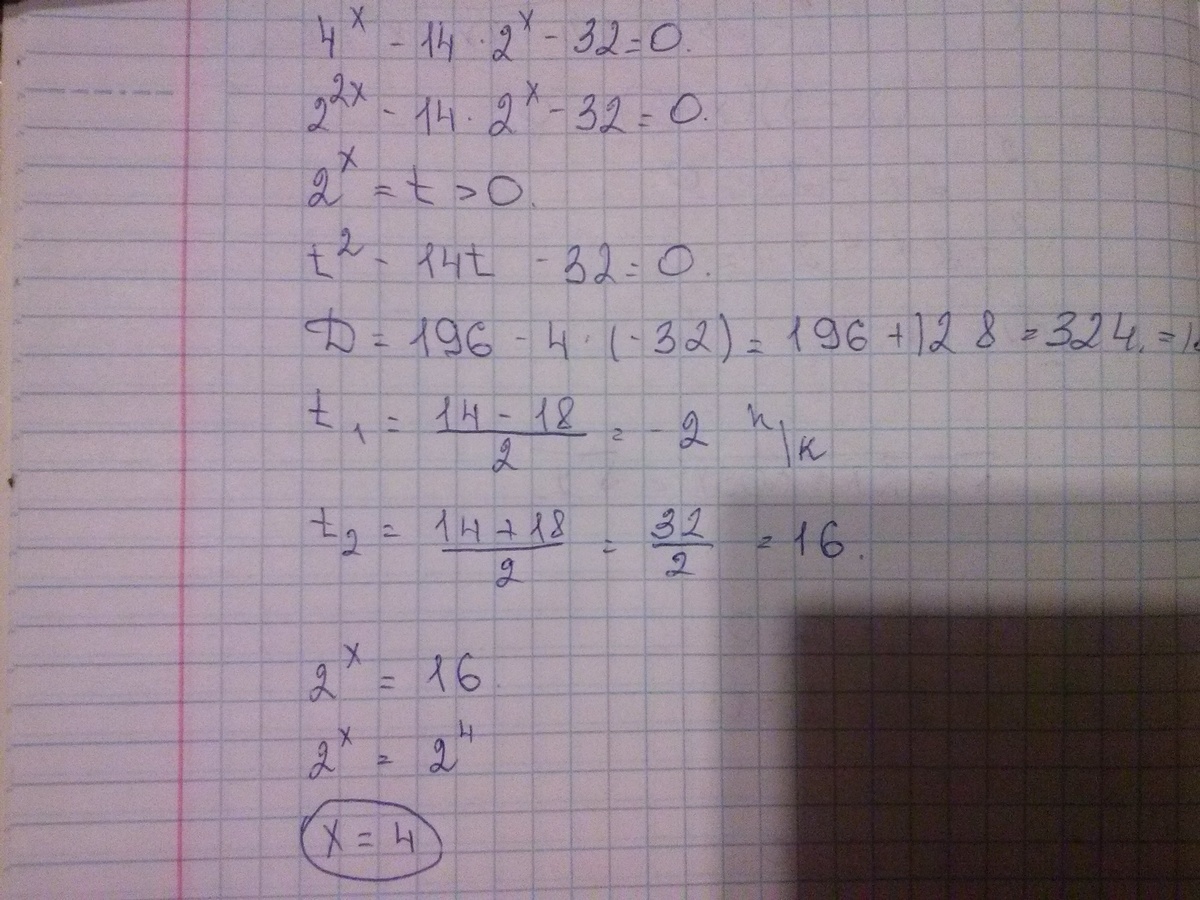 4^x - 14 · 2^x - 32 = 0.
2^2x - 14 · 2^x - 32 = 0.
2^x = t > 0.
t^2 - 14t - 32 = 0.
D = 196 - 4 · (-32) = 196 + 128 = 324. =
t1 = (14 - 18)/2 = -2 п/к
t2 = (14 + 18)/2 = 32/2 = 16.
2^x = 16
2^x = 2^4
x = 4